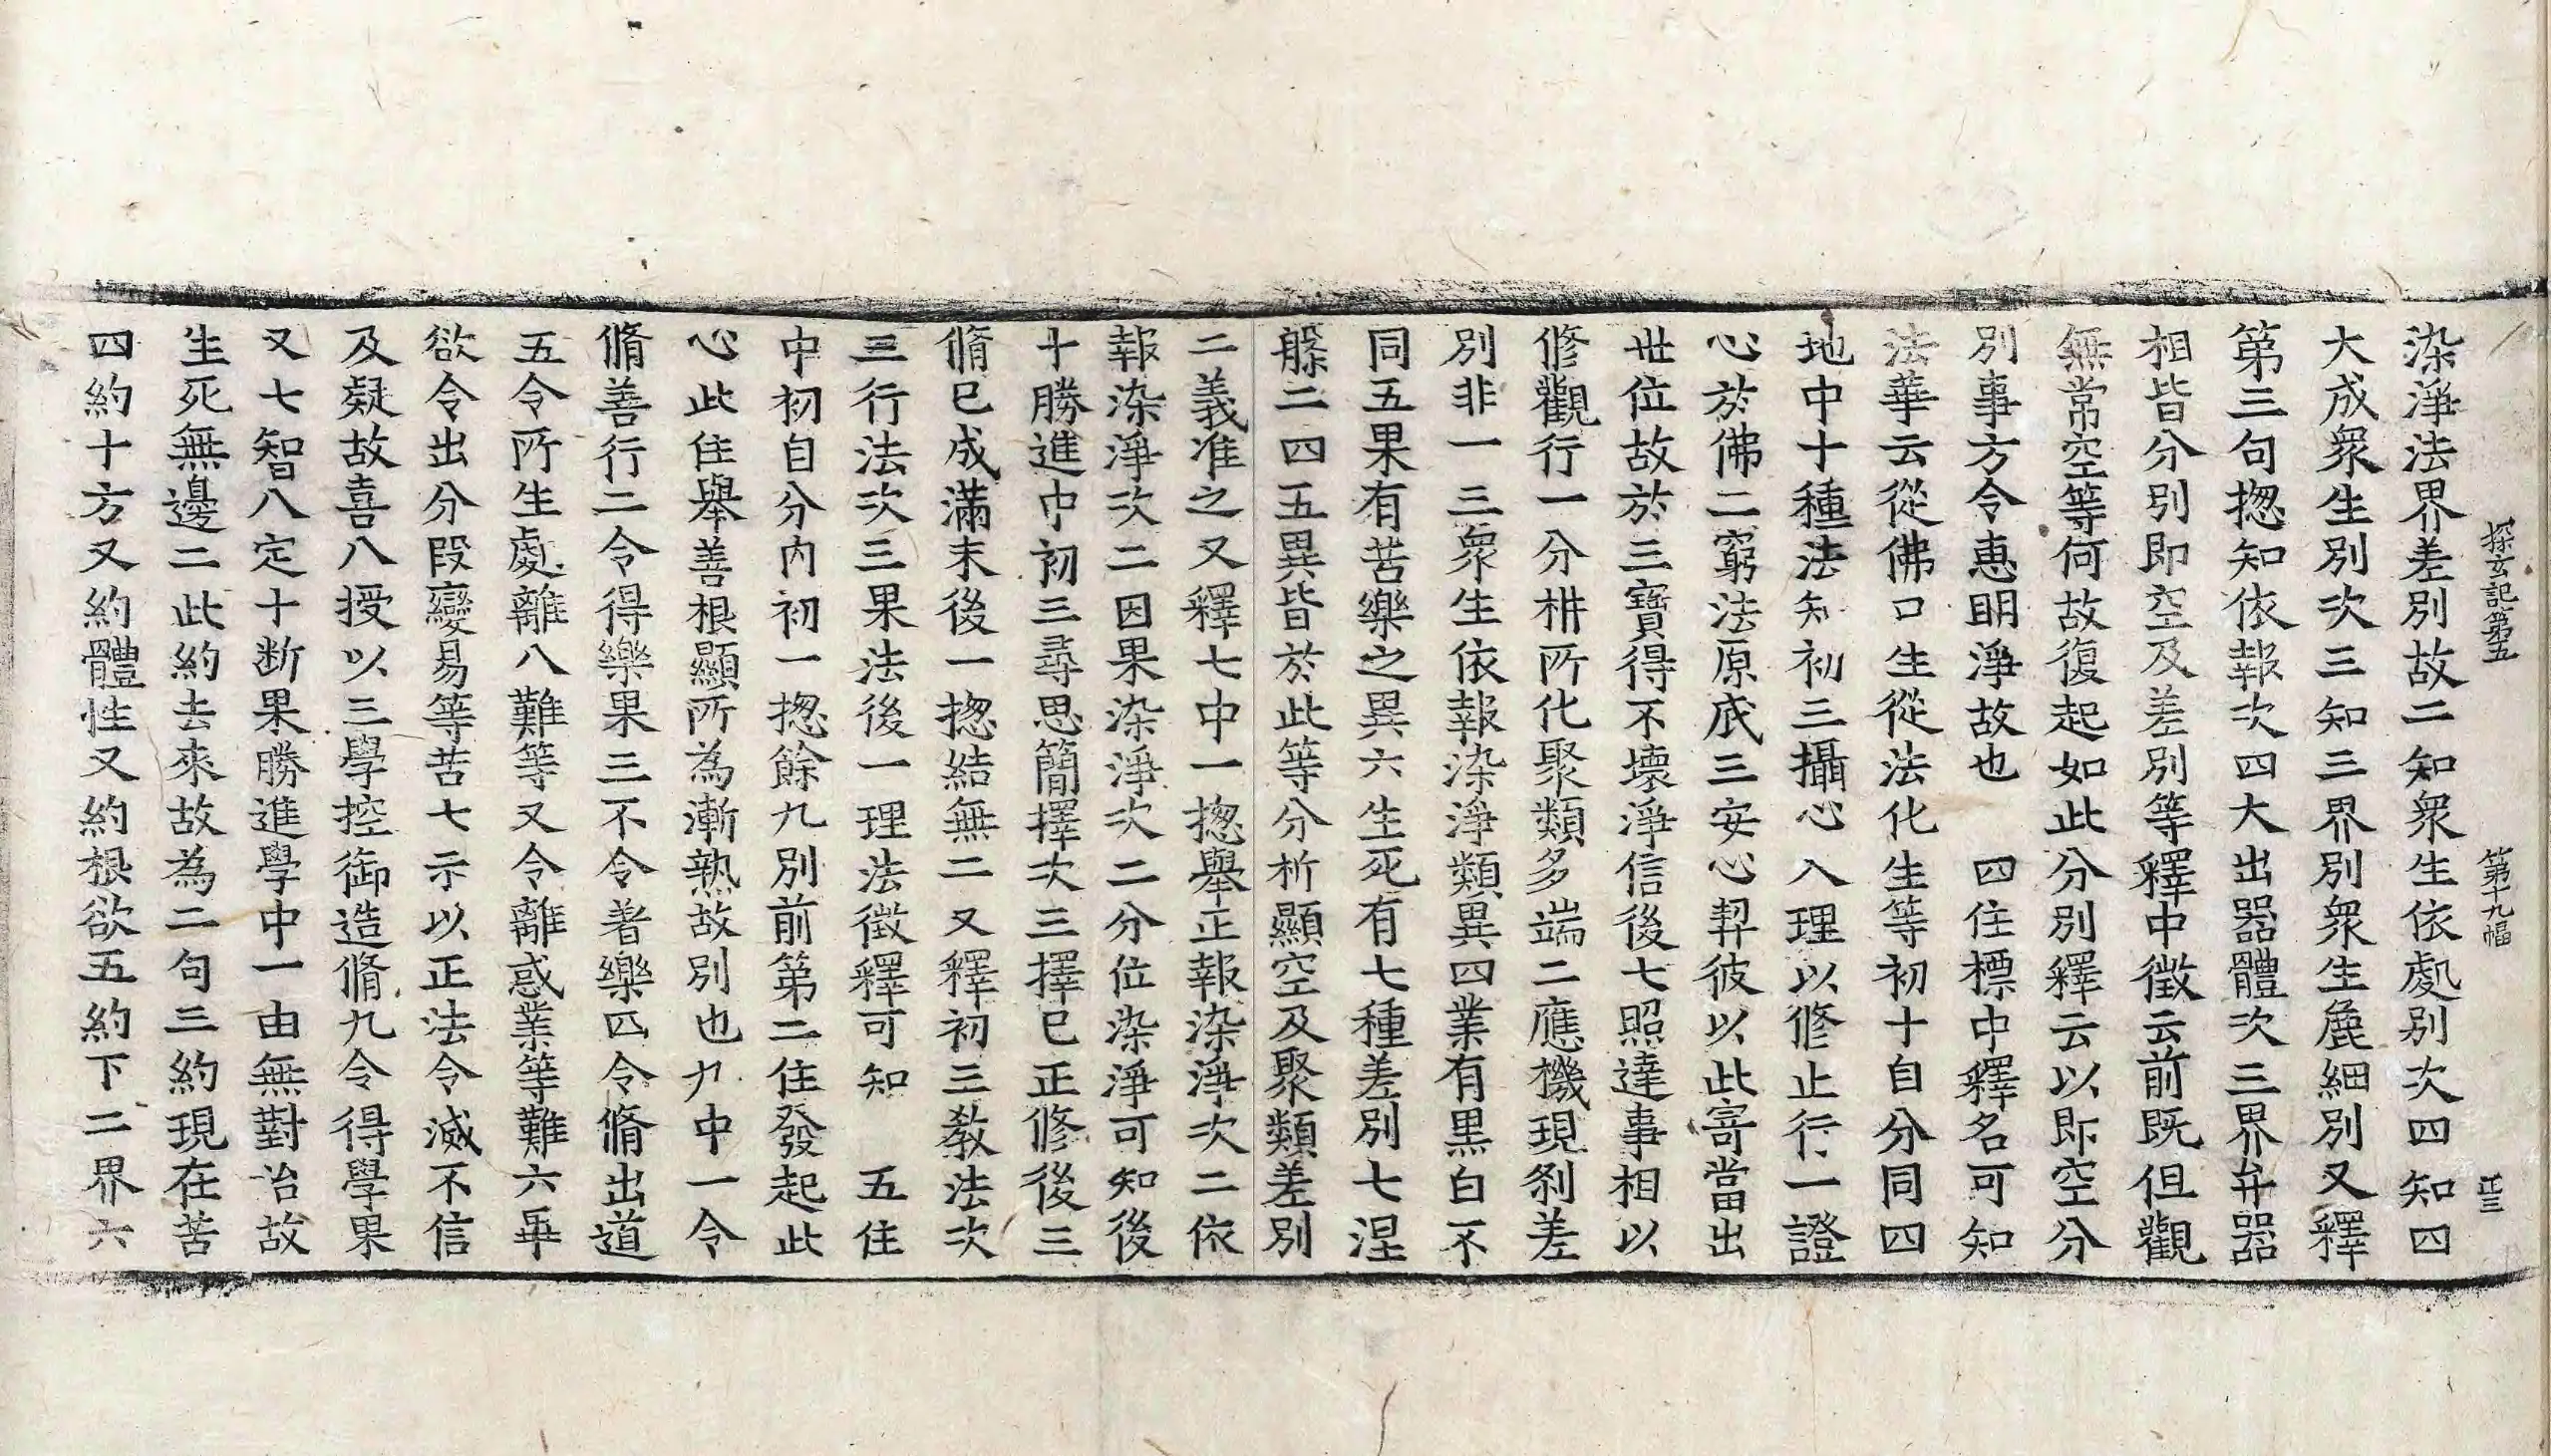 探玄記第五　第十九幅　正三
染淨法界差別故二知衆生依處别次四知四
大成衆生别次三知三界別衆生麁細別又釋
第三句揔知依報次四大出器體次三界弁器
相皆分別即空及差別等釋中徵云前既但觀
無常空等何故復起如此分別釋云以即空分
別事方令惠明淨故也　四住標中釋名可知
法華云從佛口生從法化生等初十自分同四
地中十種法知初三攝心入理以修止行一證
心於佛二窮法原底三安心契彼以此寄當出
世位故於三寶得不壞淨信後七照達事相以
修觀行一分枡所化聚類多端二應機現刹差
別非一三衆生依報染淨類異四業有黒白不
同五果有苦樂之異六生死有七種差別七涅
槃二四五異皆於此等分析顯空及聚類差別
二義准之又釋七中一揔舉正報染淨次二依
報染淨次二因果染淨次二分位染淨可知後
十勝進中初三尋思簡擇次三擇已正修後三
脩已成滿末後一揔結無二又釋初三教法次
三行法次三果法後一理法徵釋可知　五住
中初自分内初一揔餘九別前第二住發起此
心此住舉善根顯所為漸熟故別也九中一令
脩善行二令得樂果三不令著樂四令脩出道
五令所生處離八難等又令離惑業等難六畢
欲令出分段變易等苦七示以正法令滅不信
及疑故喜八授以三學控御造脩九令得學果
又七智八定十断果勝進學中一由無對治故
生死無邊二此約去來故為二句三約現在苦
四約十方又約體性又約根欲五約下二界六